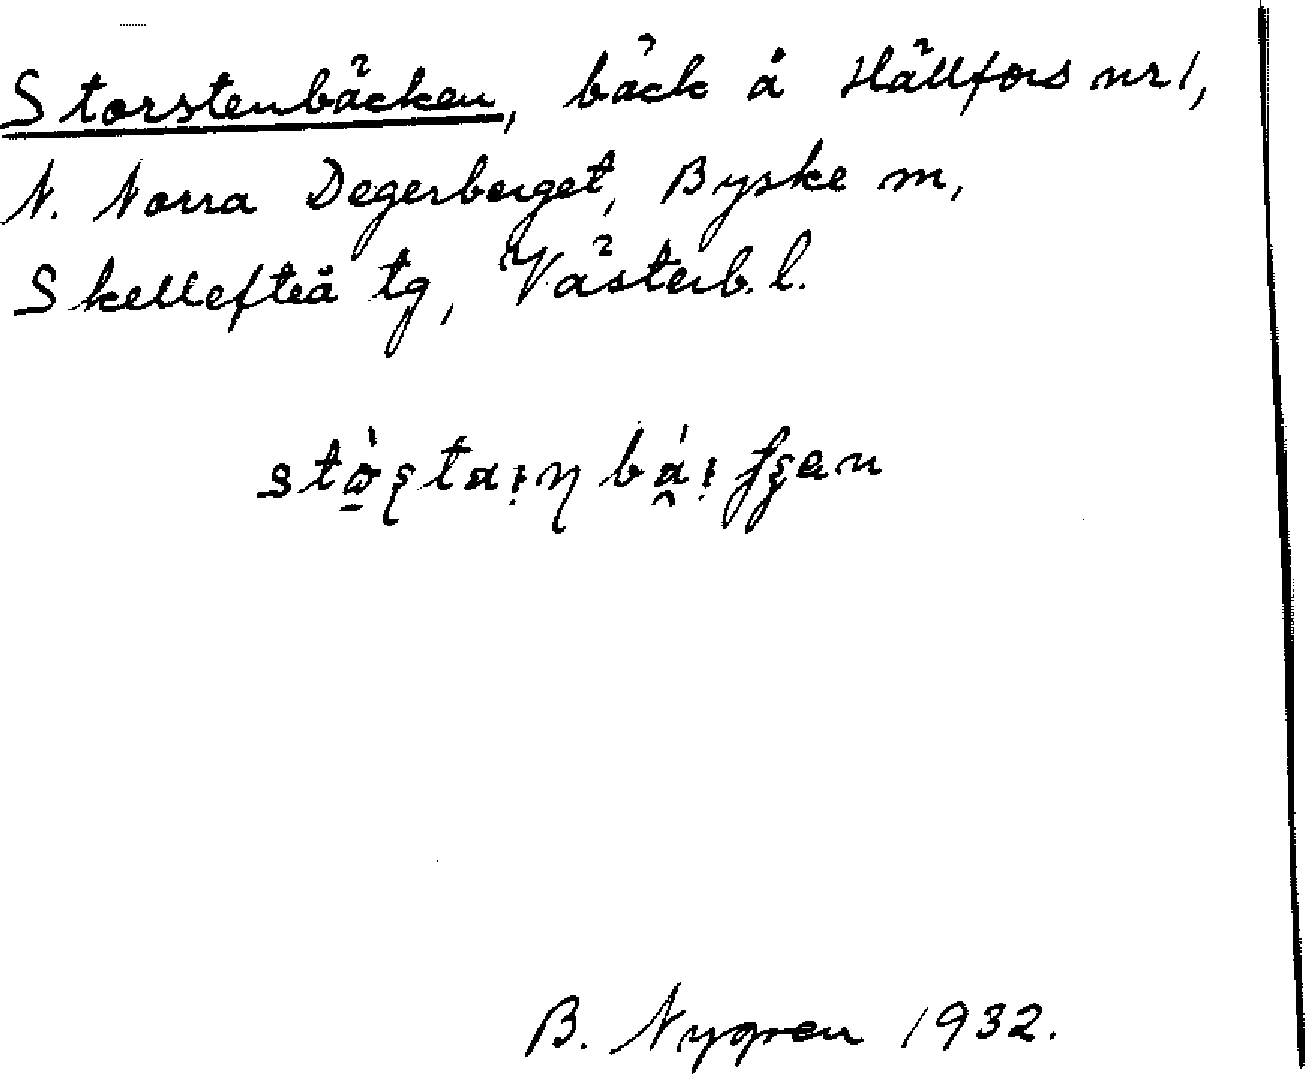 Storstenbäcken, bäck å Hällfors nr 1,
N. Norra Degerberget, Byske m,
Skellefteå tg, Västerb. l.
B. Nygren 1932.